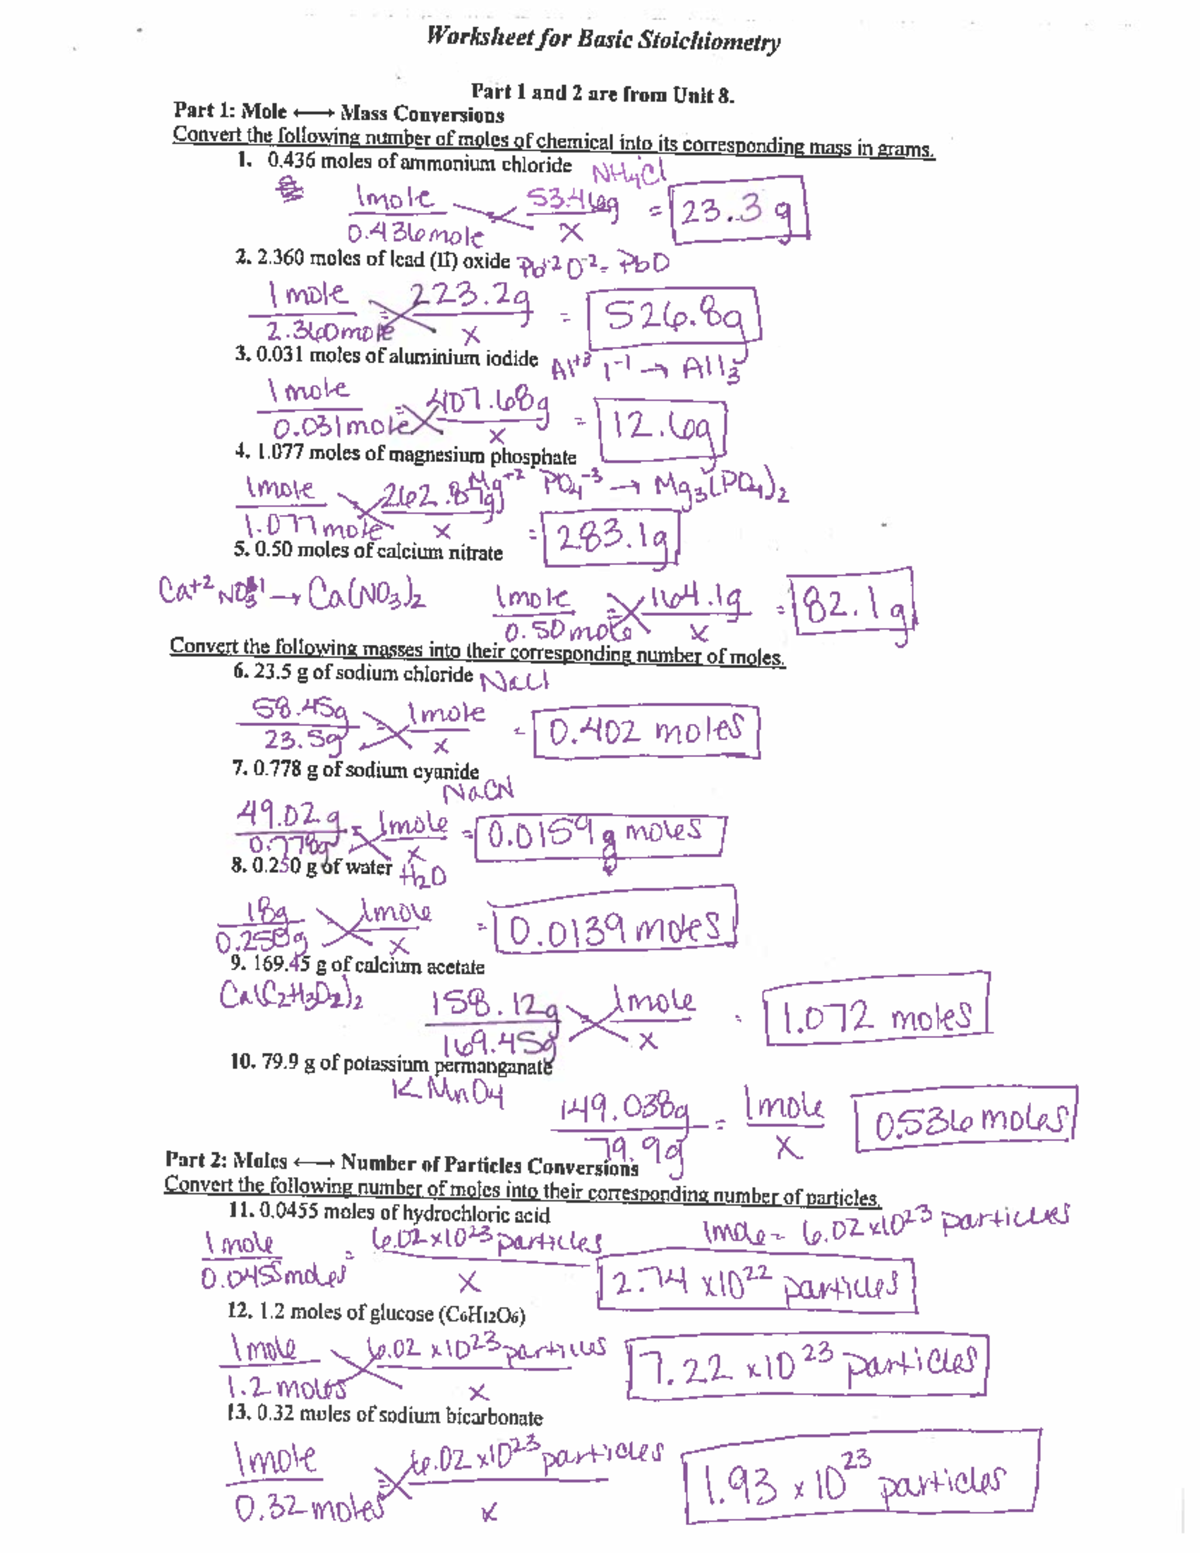 Worksheet for Basic Stoichiometry
Part 1 and 2 are from Unit 8.
Part 1: Mole ⟷ Mass Conversions
Convert the following number of moles of chemical into its corresponding mass in grams.
1. 0.436 moles of ammonium chloride NH4Cl
1mole / 0.436mole 53.46g / x = 23.3 g
2. 2.360 moles of lead (II) oxide Pb+2 O-2 = PbO
1 mole / 2.360mole = 223.2g / x = 526.8g
3. 0.031 moles of aluminium iodide Al+3 I-1 → AlI3
1 mole / 0.031mole = 407.68g / x = 12.6g
4. 1.077 moles of magnesium phosphate
Mg+2 PO4-3 → Mg3(PO4)2
1mole / 1.077mole 262.87g / x = 283.1g
5. 0.50 moles of calcium nitrate
Ca+2 NO3-1 → Ca(NO3)2 1mole / 0.50mole = 164.1g / x = 82.1g
Convert the following masses into their corresponding number of moles.
6. 23.5 g of sodium chloride NaCl
58.45g / 23.5g = 1mole / x = 0.402 moles
7. 0.778 g of sodium cyanide
NaCN
49.02g / 0.778g = 1mole / x = 0.0159 moles
8. 0.250 g of water H2O
18g / 0.250g 1mole / x = 0.0139 moles
9. 169.45 g of calcium acetate
Ca(C2H3O2)2 158.12g / 169.45g = 1mole / x = 1.072 moles
10. 79.9 g of potassium permanganate
KMnO4 149.038g / 79.9g = 1mole / x 0.536 moles
Part 2: Moles ⟷ Number of Particles Conversions
Convert the following number of moles into their corresponding number of particles.
11. 0.0455 moles of hydrochloric acid 1mole = 6.02x10^23 particles
1mole / 0.0455moles = 6.02x10^23 particles / x 2.74 x10^22 particles
12. 1.2 moles of glucose (C6H12O6)
1mole / 1.2 moles 6.02 x10^23 particles / x 7.22 x10^23 particles
13. 0.32 moles of sodium bicarbonate
1mole / 0.32 moles = 6.02 x10^23 particles / x 1.93 x 10^23 particles